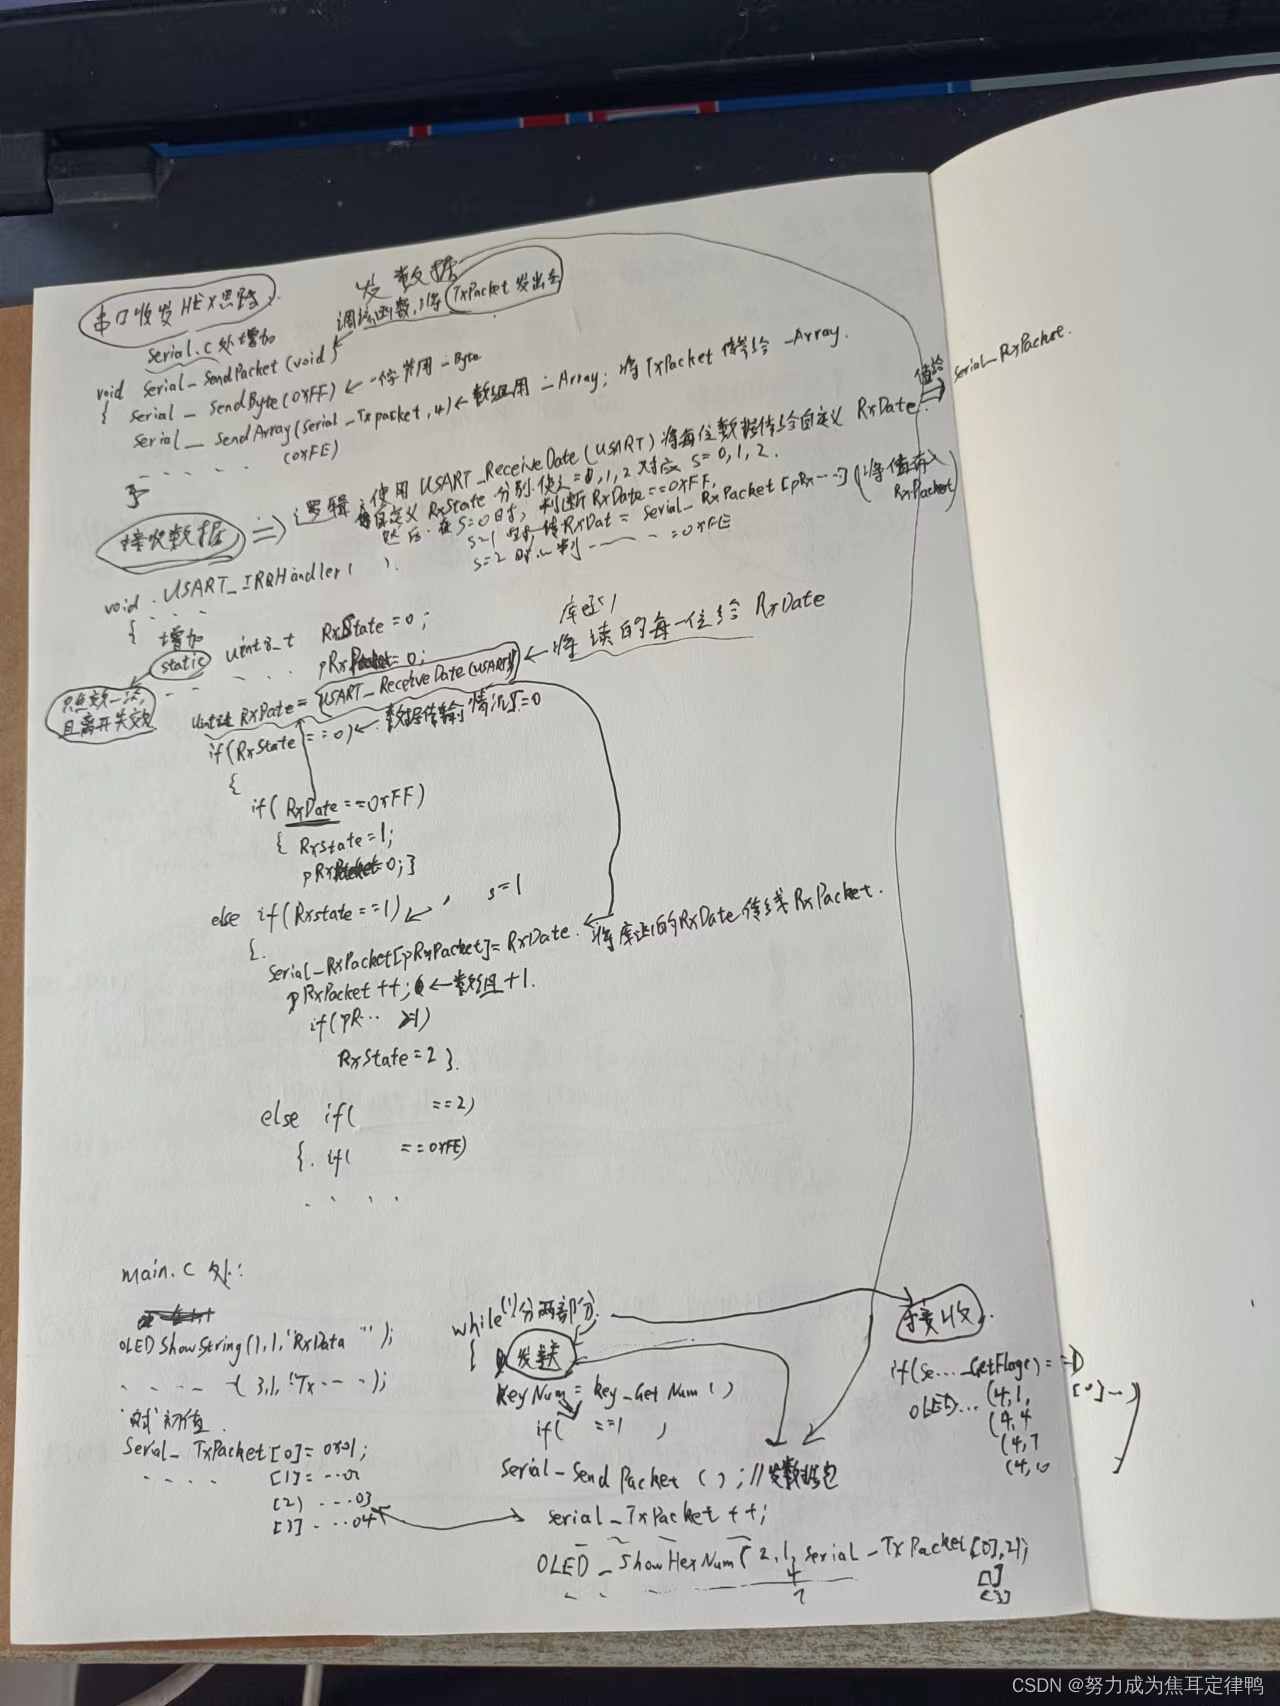 串口收发HEX思路.
发数据
调该函数,将TxPacket 发出去
Serial.c处增加
void Serial_SendPacket(void)
{ Serial_SendByte(0xFF) ← 一字节用_Byte
Serial_SendArray(Serial_Txpacket,4) ← 数组用_Array; 将TxPacket 传给_Array.
(0xFE)
接收数据 => 逻辑:使用USART_ReceiveDate(USART)将每位数据传给自定义RxDate.
值给 Serial_RxPacket.
自定义RxState 分别使之=0,1,2 对应 S=0,1,2.
然后:在S=0时,判断RxDate==0xFF,
S=1时,使RxDat=Serial_RxPacket[pRx…](将值存入RxPacket)
S=2时 … 判 …… =0xFE
void USART_IRQHandler( ).
{ 增加
static uint8_t RxState=0;
pRxPacket=0;
只生效一次,
且离开失效
RxDate=USART_ReceiveDate(USART1) ← 将读的每一位给RxDate
if(RxState==0) ← 数据传输情况S=0
{
if(RxDate==0xFF)
{ RxState=1;
pRxPacket=0;}
else if(Rxstate==1) s=1
{
Serial_RxPacket[pRxPacket]=RxDate.
pRxPacket++; ← 数组+1.
if(pR…
RxState=2}.
else if( ==2)
{. if( ==0xFE)
. . . .
main.c 处:
OLED ShowString(1,1,"RxData ");
( 3,1,"Tx-- -);
初值.
Serial_TxPacket[0]=0x01;
[1]=
[2] ---03
[3] ---04
while(1)分两部分.
{ 发送
KeyNum = Key_GetNum()
if( ==1 )
Serial_SendPacket( ); //发数据包
Serial_TxPacket ++;
OLED_ShowHexNum(2,1,Serial_TxPacket[0],2);
4
7
[1]
[3]
接收.
if(Se…_GetFlage)==1
OLED… (4,1, [0]--)
(4,4
(4,7
(4,10
CSDN @努力成为焦耳定律鸭